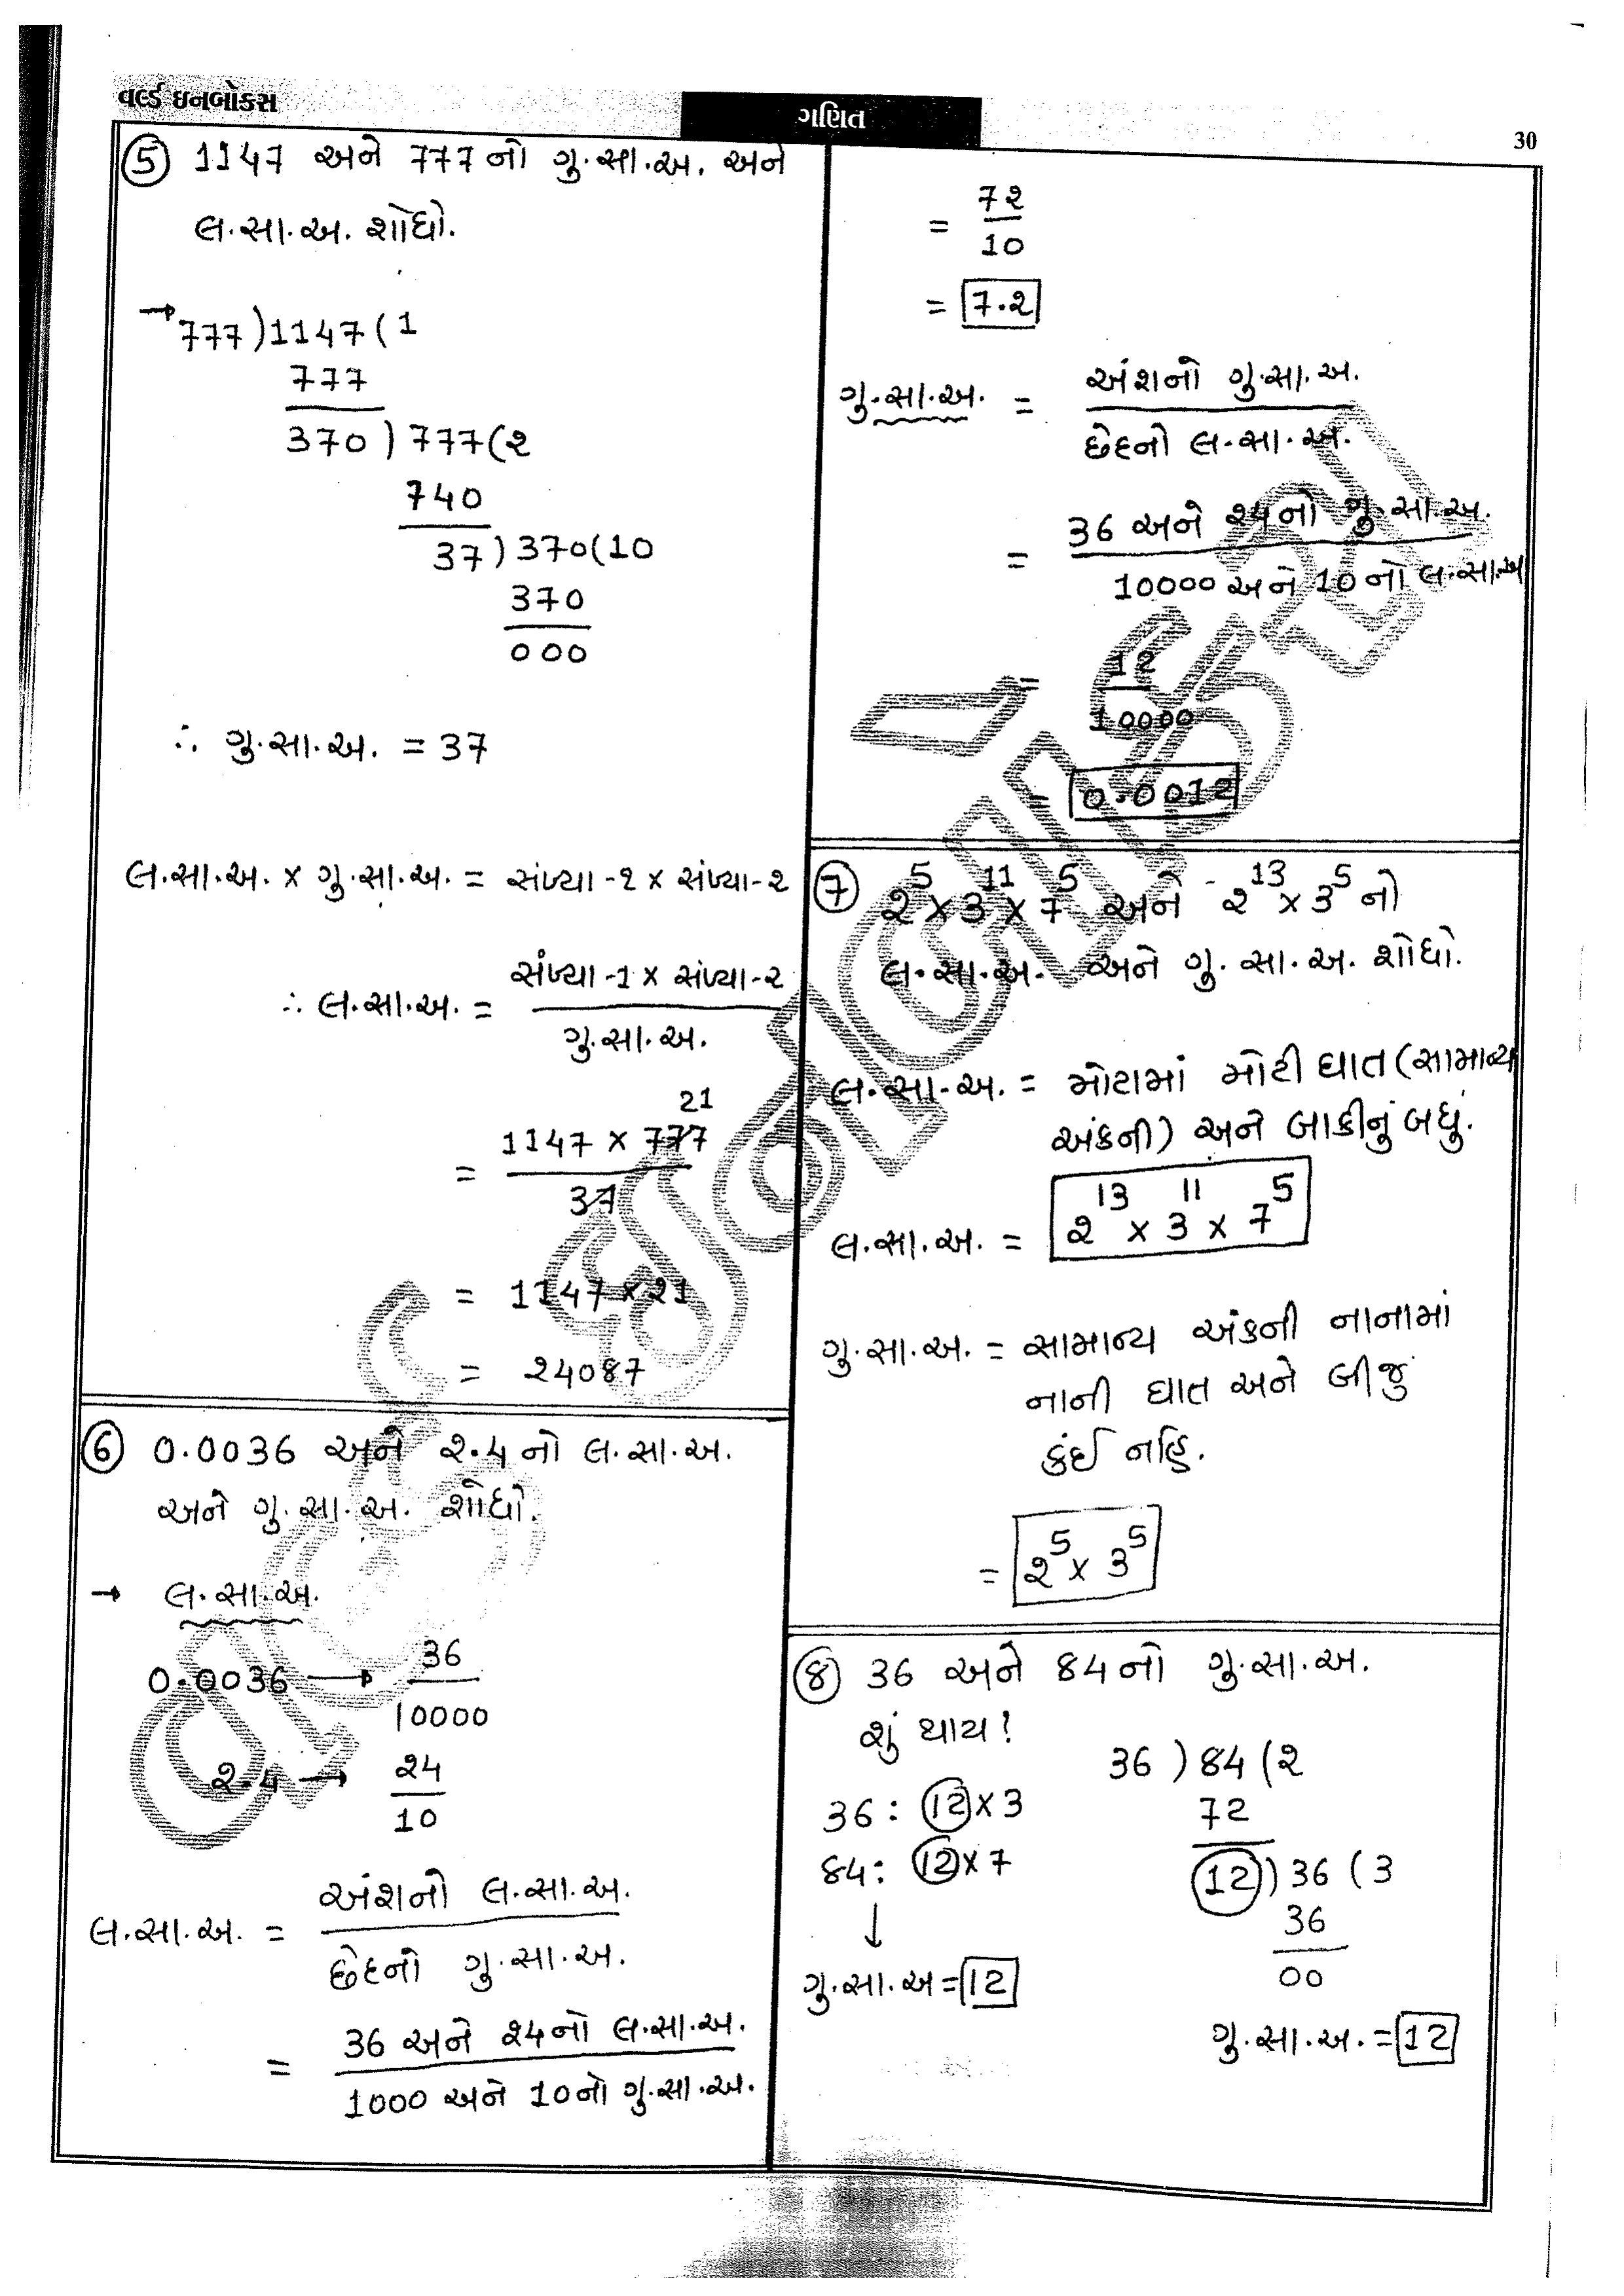 વર્લ્ડ ઇનબોક્સ
ગણિત
30
⑤ 1147 અને 777નો ગુ.સા.અ. અને
લ.સા.અ. શોધો.
→ 777)1147(1
777
370)777(૨
740
37)370(10
370
000
∴ ગુ.સા.અ. = 37
લ.સા.અ. x ગુ.સા.અ. = સંખ્યા-૧ x સંખ્યા-૨
∴ લ.સા.અ. = સંખ્યા-1 x સંખ્યા-૨
ગુ.સા.અ.
21
= 1147 x 777
37
= 1147 x 21
= ૨4087
⑥ 0.0036 અને ૨.4 નો લ.સા.અ.
અને ગુ.સા.અ. શોધો.
→ લ.સા.અ.
0.0036 → 36
10000
૨.4 → ૨4
10
લ.સા.અ. = અંશનો લ.સા.અ.
છેદનો ગુ.સા.અ.
= 36 અને ૨4નો લ.સા.અ.
1000 અને 10નો ગુ.સા.અ.
= 7૨
10
= 7.૨
ગુ.સા.અ. = અંશનો ગુ.સા.અ.
છેદનો લ.સા.અ.
= 36 અને ૨4નો ગુ.સા.અ.
10000 અને 10નો લ.સા.અ
= 12
10000
= 0.0012
⑦ ૨⁵ x 3¹¹ x 7⁵ અને ૨¹³ x 3⁵ નો
લ.સા.અ. અને ગુ.સા.અ. શોધો.
લ.સા.અ. = મોટામાં મોટી ઘાત (સામાન્ય
અંકની) અને બાકીનું બધું.
લ.સા.અ. = ૨¹³ x 3¹¹ x 7⁵
ગુ.સા.અ. = સામાન્ય અંકની નાનામાં
નાની ઘાત અને બીજું
કંઈ નહિ.
= ૨⁵ x 3⁵
⑧ 36 અને 84નો ગુ.સા.અ.
શું થાય?
36 : 12 x 3
84 : 12 x 7
↓
ગુ.સા.અ = 12
36)84(૨
72
12)36(3
36
00
ગુ.સા.અ. = 12